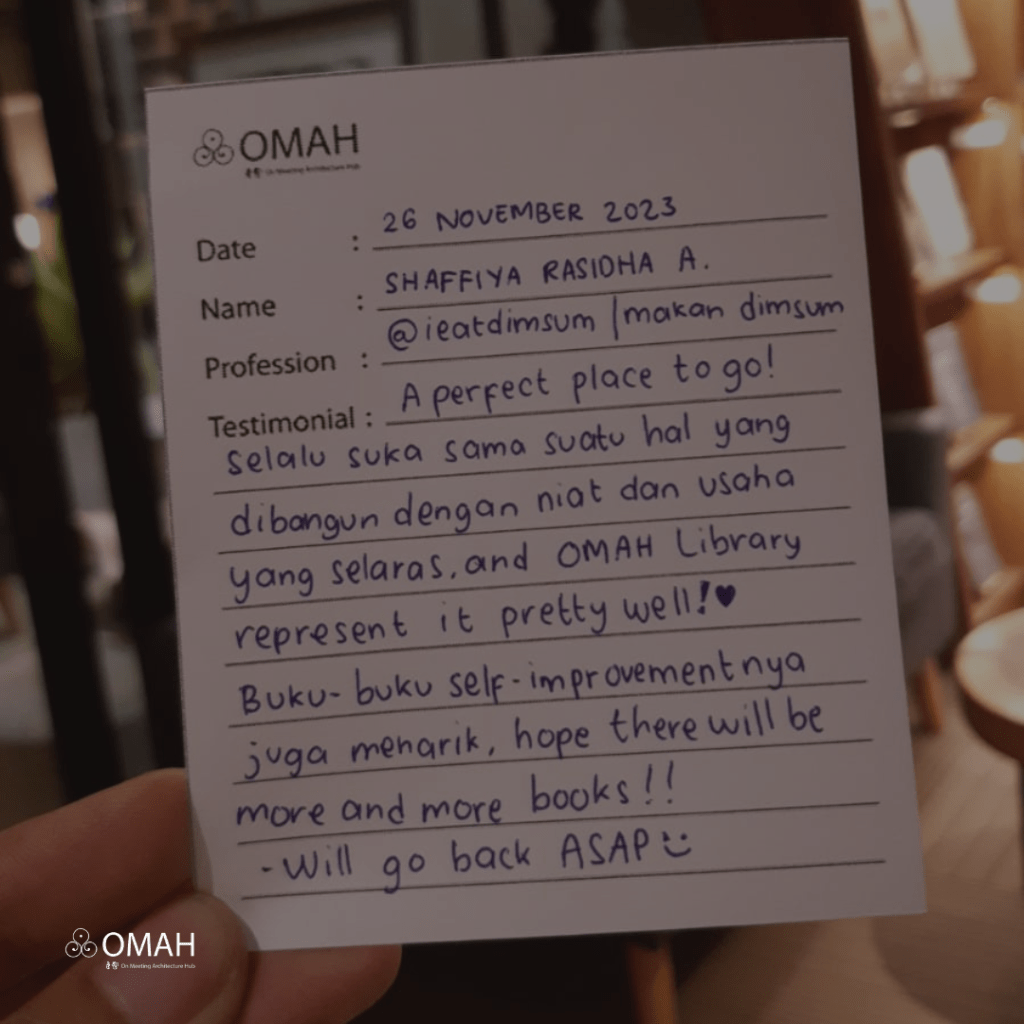 OMAH
On Meeting Architecture Hub
Date : 26 NOVEMBER 2023
Name : SHAFFIYA RASIDHA A.
Profession : @ieatdimsum | makan dimsum
Testimonial : A perfect place to go!
selalu suka sama suatu hal yang
dibangun dengan niat dan usaha
yang selaras, and OMAH Library
represent it pretty well! ♥
Buku-buku self-improvementnya
juga menarik, hope there will be
more and more books!!
- Will go back ASAP :)
OMAH
On Meeting Architecture Hub